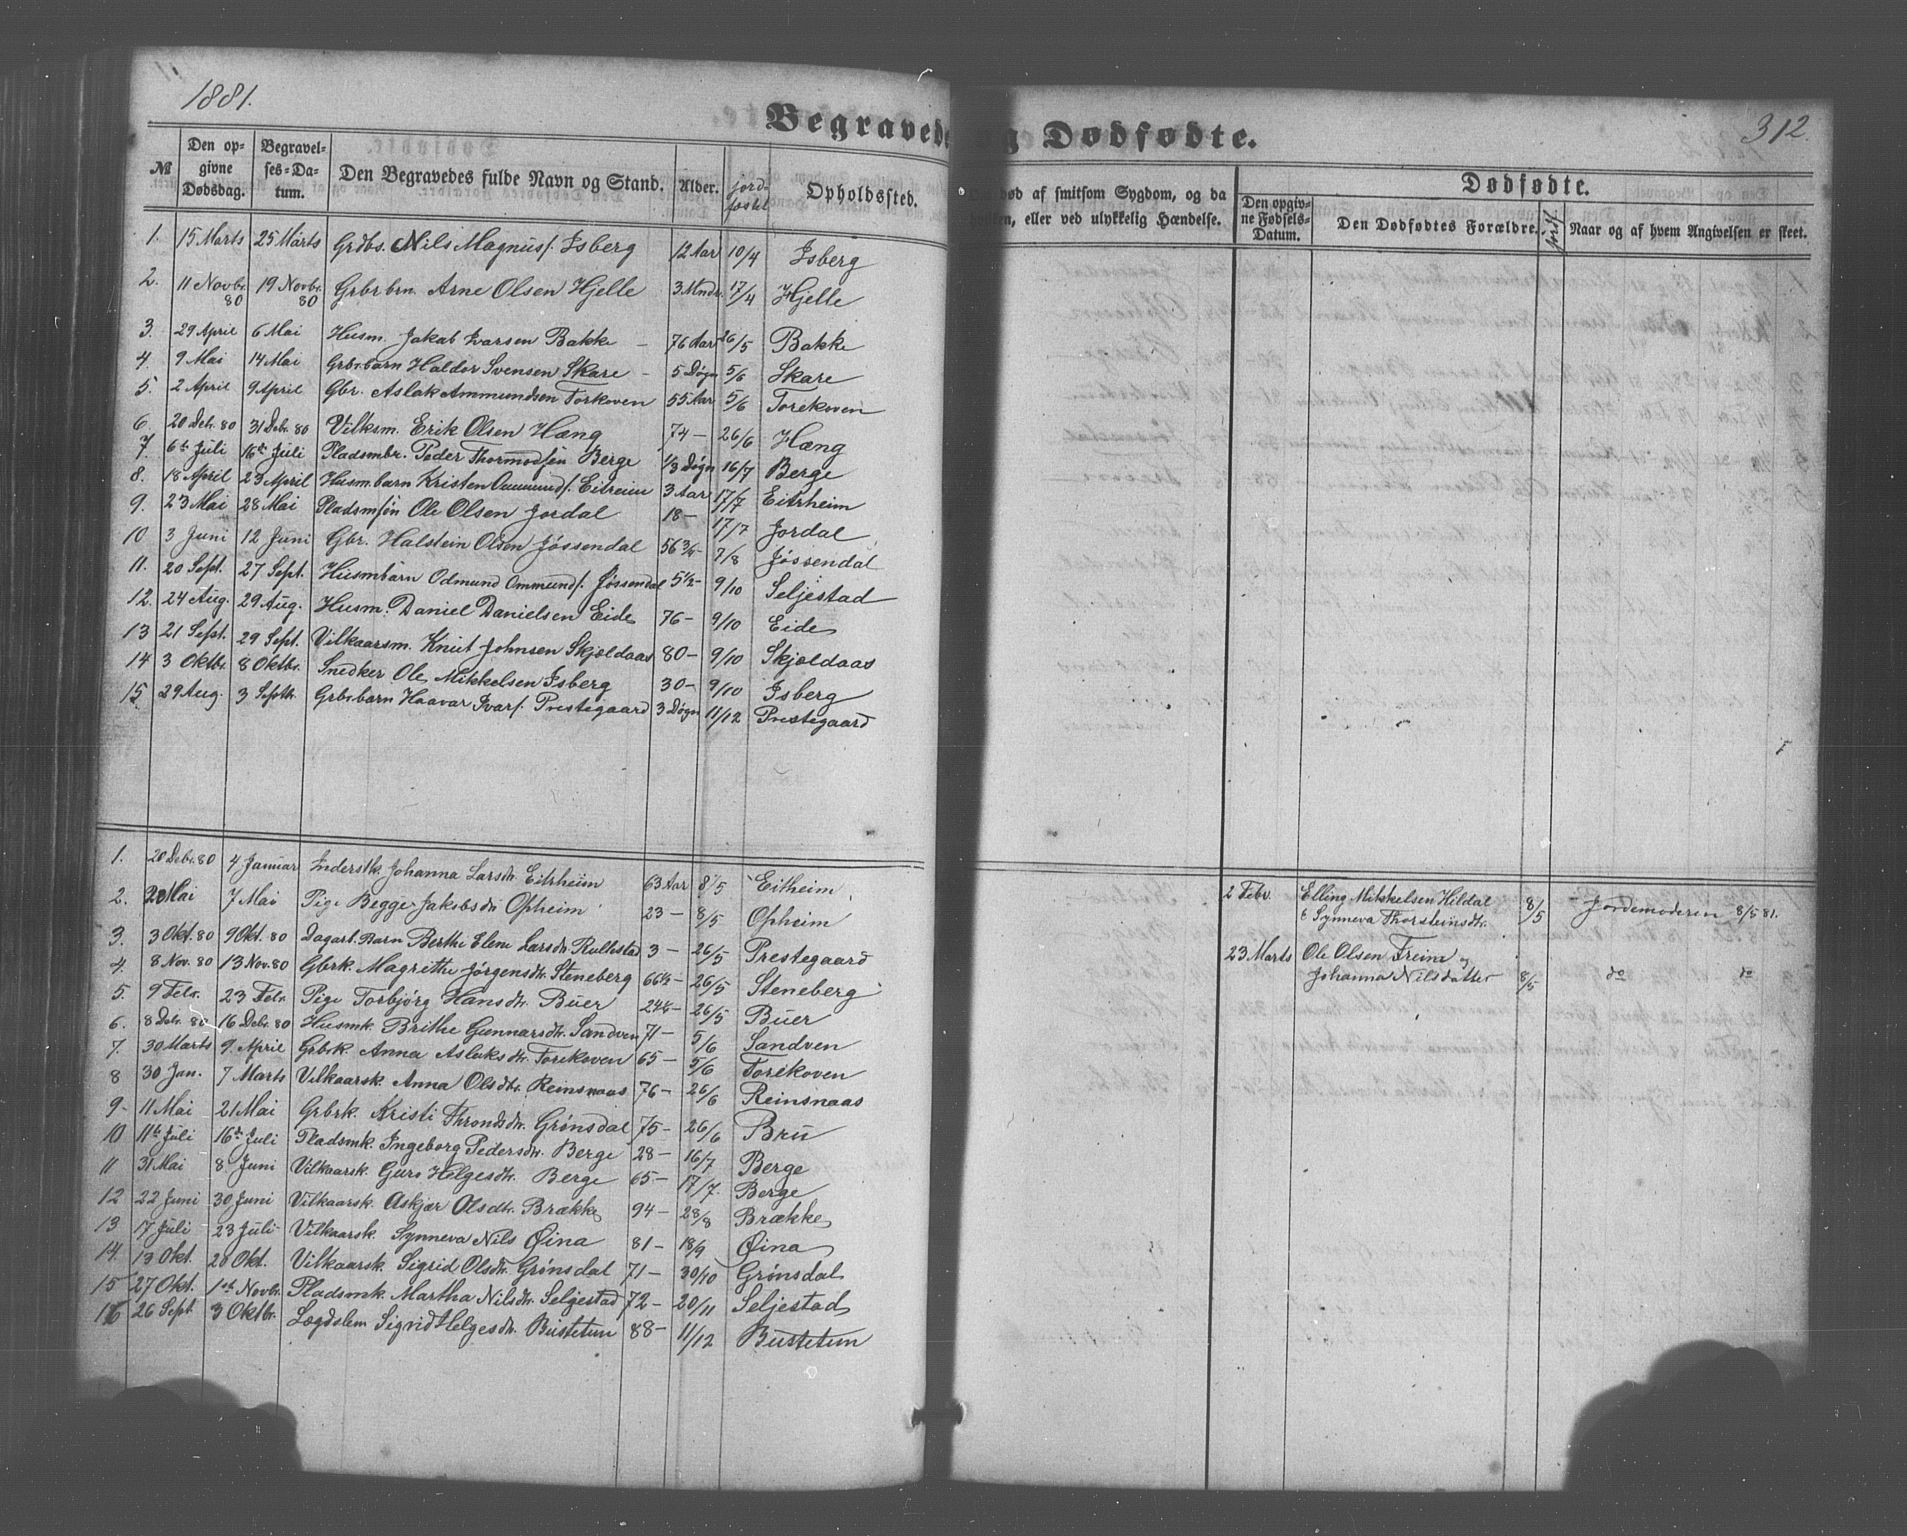 1881.
312.
Begravede og Dødfødte.
№ Den opgivne Dødsdag. Begravelses=Datum. Den Begravedes fulde Navn og Stand. Alder. jordfæstet Opholdssted.
død af smitsom Sygdom, og da
eller ved ulykkelig Hændelse.
Dødfødte.
Den opgivne Fødsels-Datum. Den Dødfødtes Forældre. jorf. Naar og af hvem Angivelsen er skeet.
1. 15 Marts 25 Marts Grdbs. Nils Magnusf. Isberg 12 Aar 10/4 Isberg
2. 11 Novbr. 80 19 Novbr. 80 Grbrbrn. Arne Olsen Hjelle 3 Mndr. 17/4 Hjelle
3. 29 April 6 Mai Husm. Jakob Ivarsen Bakke – 76 Aar 26/5 Bakke
4. 9 Mai 14 Mai Grbsbarn Haldor Svensen Skare – 5 Døgn 5/6 Skare
5. 2 April 9 April Gbr. Aslak Ammundsen Torkoven 55 Aar 5/6 Torekoven
6. 20 Debr. 80 31 Debr. 80 Vilksm. Erik Olsen Hæng 74 – 26/6 Hæng
7. 6te Juli 16de Juli Pladsmbr. Peder Thormodsen Berge 1/3 Døgn 16/7 Berge
8. 18 April 23 April Husmbarn Kristen Ommundf. Eitreim 3 Aar 17/7 Eitrheim
9. 23 Mai 28 Mai Pladsmsøn Ole Olsen Jordal 18 – 17/7 Jordal
10 3 Juni 12 Juni Gbr. Halstein Olsen Jøssendal 56 3/4 – 7/8 Jøssendal
11. 20 Sept. 27 Sept. Husmbarn Odmund Ommundf. Jøssendal 5 1/2 – 9/10 Seljestad
12. 24 Aug. 29 Aug. Husm. Daniel Danielsen Eide 76 – 9/10 Eide
13 21 Sept. 29 Sept. Vilkaarsm. Knut Johnsen Skjoldaas 80 – 9/10 Skjoldaas
14 3 Oktbr. 8 Oktbr. Snedker Ole Mikkelsen Isberg 30 – 9/10 Isberg
15 29 Aug. 3 Septbr. Grbsbarn Haavar Ivarf. Prestegaard 3 Døgn 11/12 Prestegaard
1. 20 Debr. 80 4 Januar Inderstk. Johanna Larsdr. Eitrheim 63 Aar 8/5 Eitheim
2. Mai 7 Mai Pige Begge Jakobsdr Opheim 23 – 8/5 Opheim
3. 3 Okt. 80 9 Okt. 80 Dagarl. Barn Berthe Elene Larsdr. Rullestad 3 – 26/5 Prestegaard
4. 8 Nov. 80 13 Nov. 80 Gbrk. Magrethe Jørgensdr. Steneberg 66 1/2 – 26/5 Steneberg
5. 9 Febr. 23 Febr. Pige Torbjørg Hansdr. Buer 24 1/4 – 26/5 Buer
6. 8 Debr. 80 16 Debr. 80 Husmk. Brithe Gunnarsdr. Sandven 71 – 5/6 Sandven
7. 30 Marts 9. April Grbrk. Anna Aslaksdr. Torekoven 65 – 5/6 Torekoven
8 30 Jan. 7 Marts Vilkaarsk. Anna Olsdtr. Reinsnaas 76 – 26/6 Reinsnaas
9 – 11 Mai 21 Mai Grbrk. Kristi Throndsdr. Grønsdal 75 – 26/6 Bru
10 11te Juli 16de Juli Pladsmk. Ingeborg Pedersdr. Berge 28 – 16/7 Berge
11 31 Mai 8. Juni Vilkaarsk. Guro Helgesdr. Berge 65 – 17/7. Berge
12 22 Juni 30 Juni Vilkaarsk. Askjær Olsdtr. Brække 94 – 28/8 Brække
13. 17 Juli 23 Juli Vilkaarsk. Synneva Nils Øina 81 – 18/9 Øina
14. 13 Okt. 20 Okt. Vilkaarsk. Sigrid Olsdr. Grønsdal 71 – 30/10 Grønsdal
15 27 Okt. 1ste Novbr. Pladsmk. Martha Nilsdr. Seljestad 72 – 20/11 Seljestad
16 26 Sept. 3 Oktbr. Lægdslem Sigrid Helgesdr. Bustetun 88 – 11/12 Bustetun
2 Febr. Elling Mikkelsen Hildal
& Synneva Thorsteinsdr. 8/5 Jordemoderen 8/5 81.
23 Marts Ole Olsen Freim og
Johanna Nilsdatter 8/5 do do